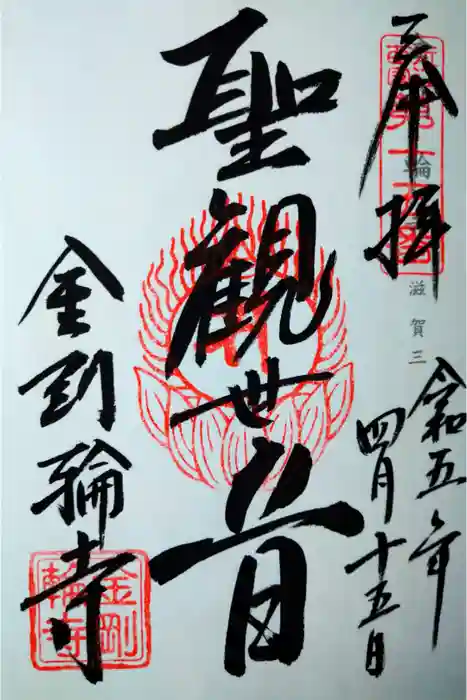 奉拝
滋賀三
令和五年
四月十五日
聖観世音
金剛輪寺
金剛
輪寺